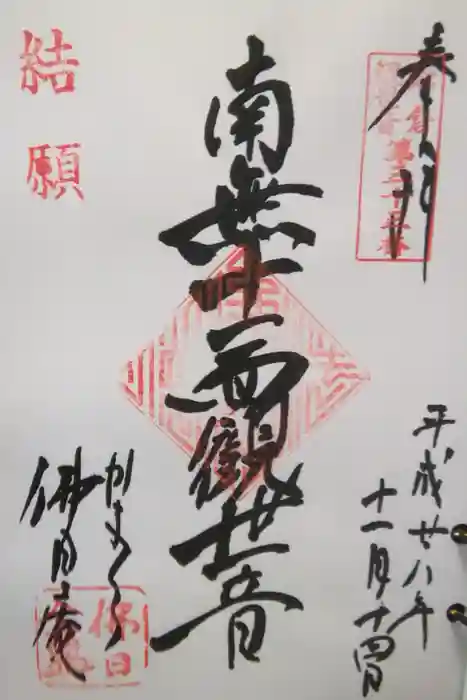 奉拝
第三十三番
平成廿八年
十一月十四日
南無十一面観世音
結願
かまくら
佛日庵
佛日